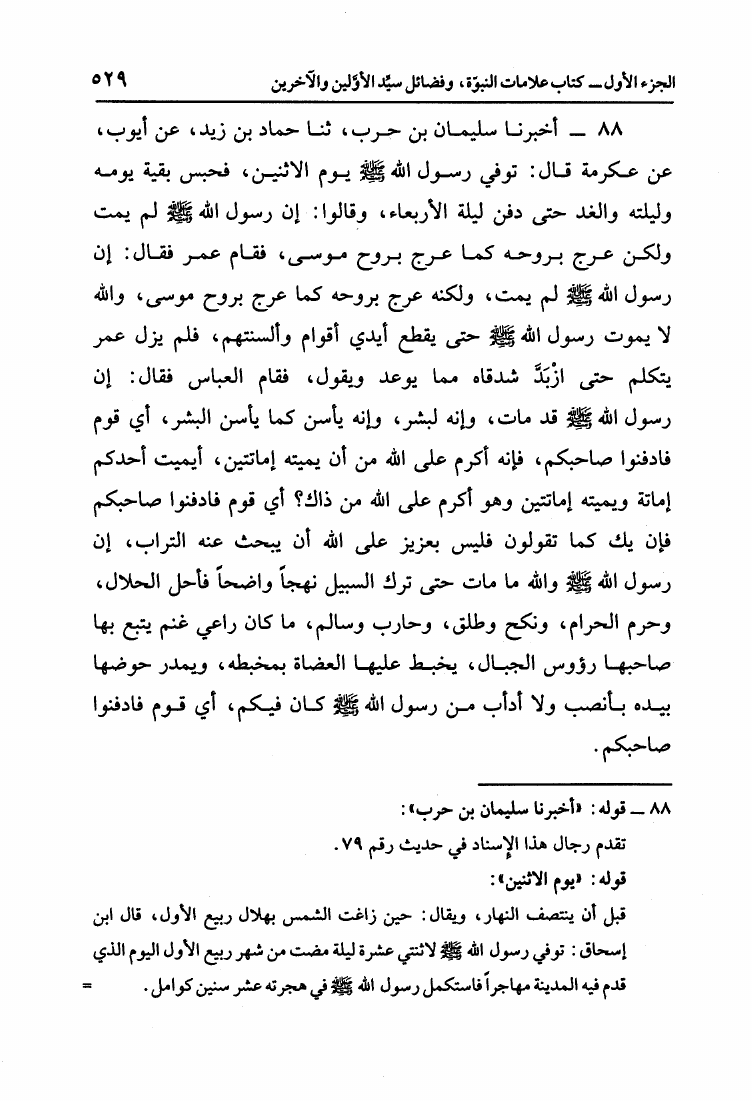 الجزء الأول ــ كتاب علامات النبوّة، وفضائل سيِّد الأوَّلين والآخرين ٥٢٩
٨٨ ــ أخبرنا سليمان بن حرب، ثنا حماد بن زيد، عن أيوب،
عن عكرمة قال: توفي رسول الله ﷺ يوم الاثنين، فحبس بقية يومه
وليلته والغد حتى دفن ليلة الأربعاء، وقالوا: إن رسول الله ﷺ لم يمت
ولكن عرج بروحه كما عرج بروح موسى، فقام عمر فقال: إن
رسول الله ﷺ لم يمت، ولكنه عرج بروحه كما عرج بروح موسى، والله
لا يموت رسول الله ﷺ حتى يقطع أيدي أقوام وألسنتهم، فلم يزل عمر
يتكلم حتى ازْبَدَّ شدقاه مما يوعد ويقول، فقام العباس فقال: إن
رسول الله ﷺ قد مات، وإنه لبشر، وإنه يأسن كما يأسن البشر، أي قوم
فادفنوا صاحبكم، فإنه أكرم على الله من أن يميته إماتتين، أيميت أحدكم
إماتة ويميته إماتتين وهو أكرم على الله من ذاك؟ أي قوم فادفنوا صاحبكم
فإن يك كما تقولون فليس بعزيز على الله أن يبحث عنه التراب، إن
رسول الله ﷺ والله ما مات حتى ترك السبيل نهجاً واضحاً فأحل الحلال،
وحرم الحرام، ونكح وطلق، وحارب وسالم، ما كان راعي غنم يتبع بها
صاحبها رؤوس الجبال، يخبط عليها العضاة بمخبطه، ويمدر حوضها
بيده بأنصب ولا أدأب من رسول الله ﷺ كان فيكم، أي قوم فادفنوا
صاحبكم.
٨٨ ــ قوله: «أخبرنا سليمان بن حرب»:
تقدم رجال هذا الإسناد في حديث رقم ٧٩.
قوله: «يوم الاثنين»:
قبل أن ينتصف النهار، ويقال: حين زاغت الشمس بهلال ربيع الأول، قال ابن
إسحاق: توفي رسول الله ﷺ لاثنتي عشرة ليلة مضت من شهر ربيع الأول اليوم الذي
قدم فيه المدينة مهاجراً فاستكمل رسول الله ﷺ في هجرته عشر سنين كوامل. =